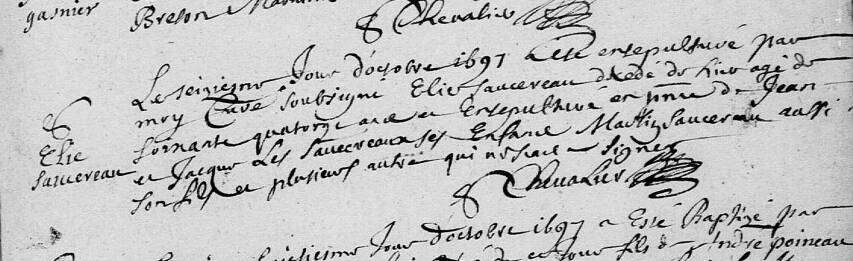 gasnier
Breton
Chevalier
Le seiziesme Jour d'octobre 1697 a esté ensepulturé par
moy Curé soubsigné Elie Saucereau décédé de hier agé de
S
Elie
Saucereau
soixante quatorze ans et Ensepulturé en pnce de Jean
et Jacque Les Saucereaux ses Enfans Martin Saucereau aussi
son fils et plusieurs autre qui ne scave signer
Chevalier
Jour d'octobre 1697 a Esté Baptizé par
fils de André poineau